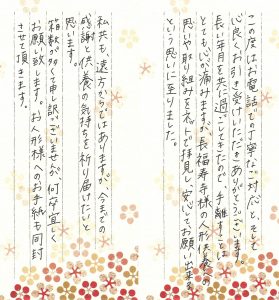 この度はお電話での丁寧なご対応と、そして
心良くお引き受けいただきありがとうございます。
長い年月を共に過ごしてきたので、手離すことは
とても心が痛みますが、長福寿寺様の人形供養への
思いや取り組みをネットで拝見し、安心してお願い出来る
という思いに至りました。
私共も、遠方からではありますが、今までの
感謝と供養の気持ちを祈り届けたいと
思います。
箱数が多く申し訳ございませんが、何卒宜しく
お願い致します。お人形様へのお手紙も同封
させて頂きます。